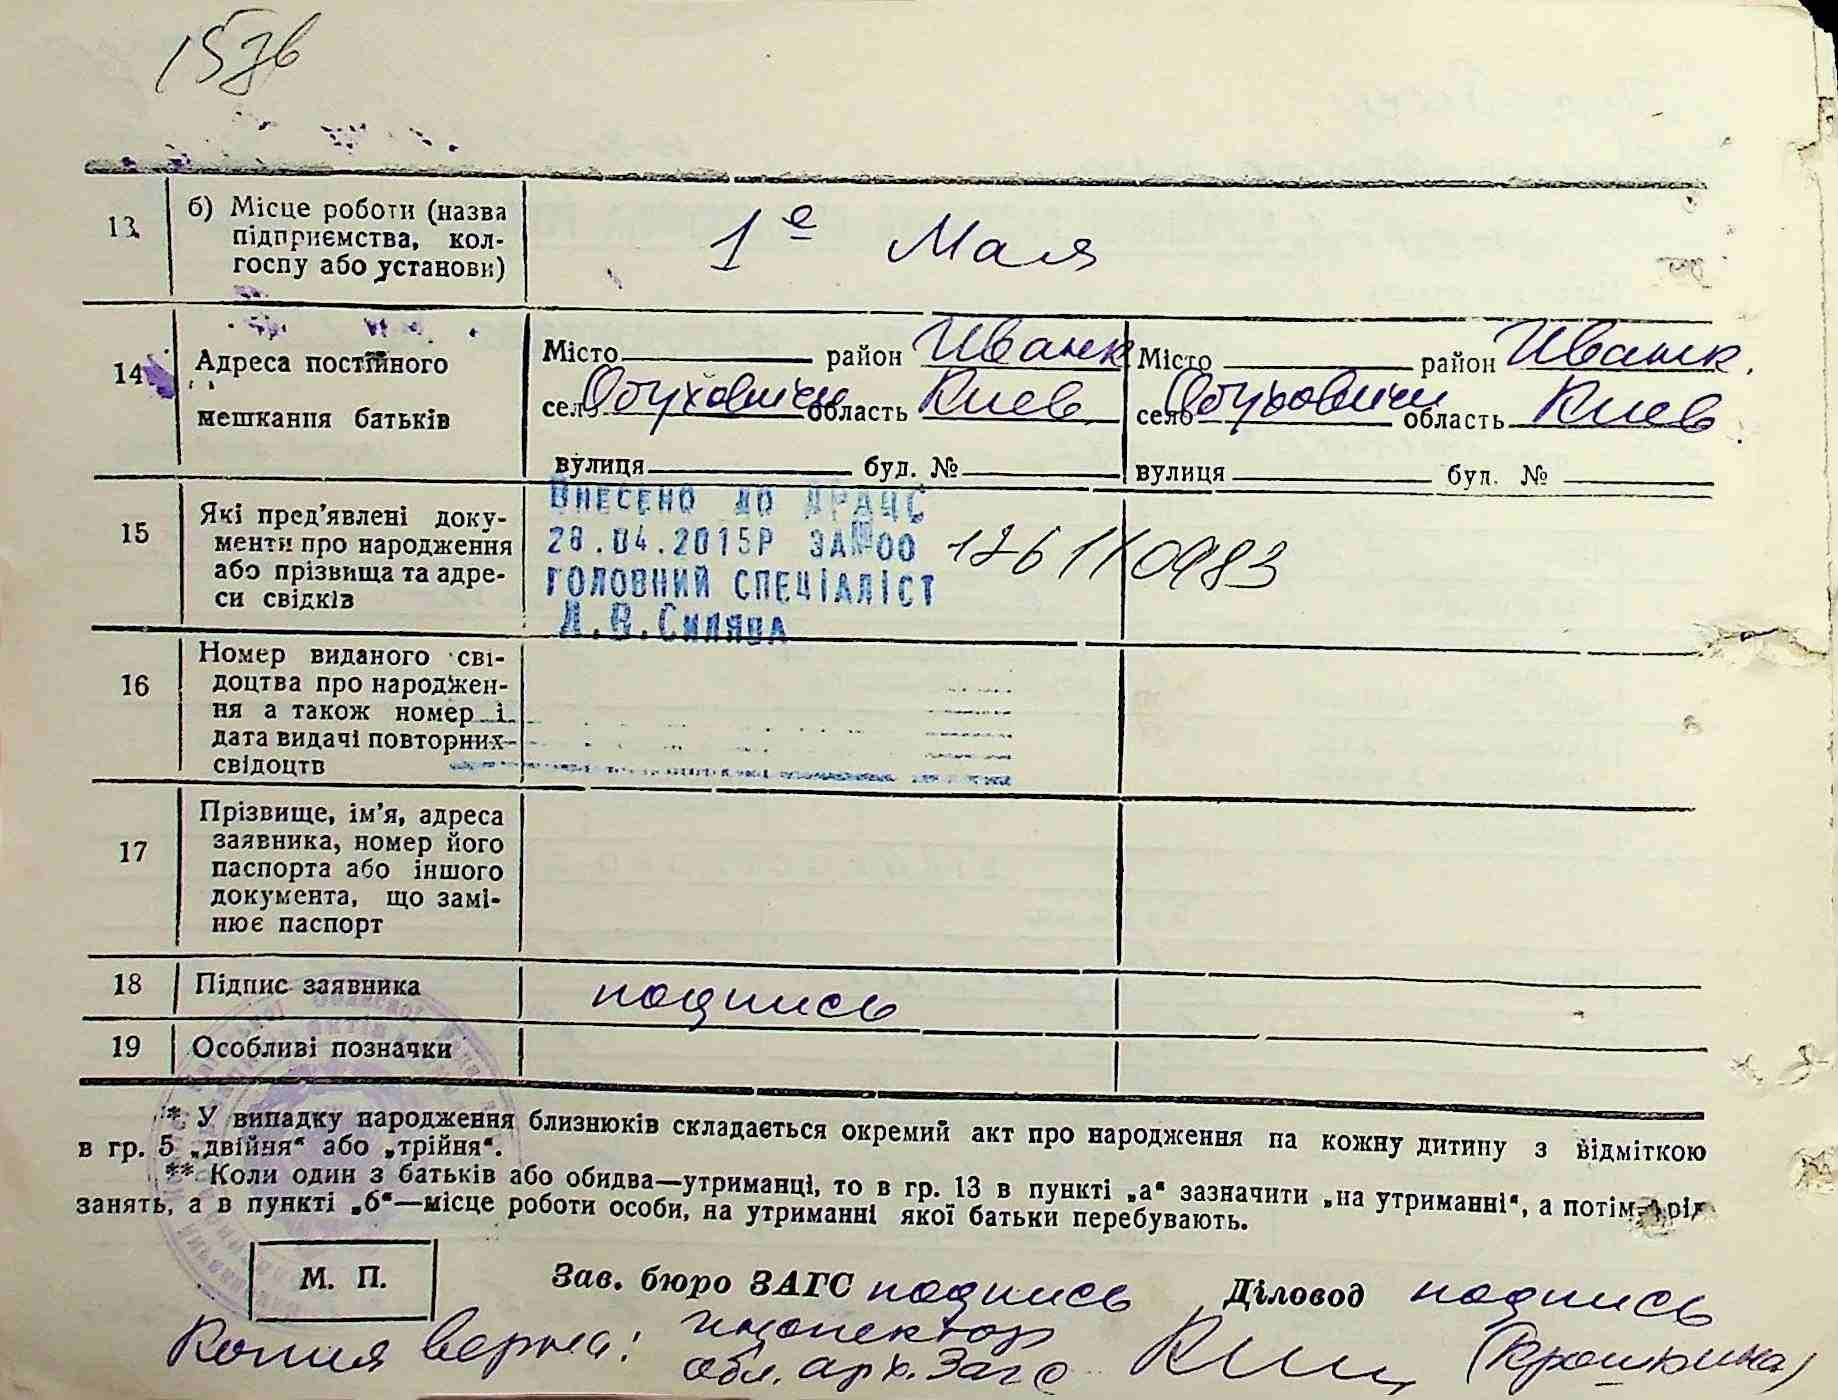 157в
13. б) Місце роботи (назва
підприємства, кол-
госпу або установи)
1е Мая
14 Адреса постійного
мешкання батьків
Місто район Иванк
село Обуховичи область Киев
вулиця буд. №
Місто район Иванк.
село Обуховичи область Киев
вулиця буд. №
15 Які пред'явлені доку-
менти про народження
або прізвища та адре-
си свідків
Внесено до ДРАЦС
28.04.2015р за №00 126110983
головний спеціаліст
16 Номер виданого сві-
доцтва про народжен-
ня а також номер і
дата видачі повторних
свідоцтв
17 Прізвище, ім'я, адреса
заявника, номер його
паспорта або іншого
документа, що замі-
нює паспорт
18 Підпис заявника подпись
19 Особливі позначки
* У випадку народження близнюків складається окремий акт про народження на кожну дитину з відміткою
в гр. 5 „двійня“ або „трійня“.
** Коли один з батьків або обидва—утриманці, то в гр. 13 в пункті „а“ зазначити „на утриманні“, а потім рід
занять, а в пункті „б“—місце роботи особи, на утриманні якої батьки перебувають.
М. П. Зав. бюро ЗАГС подпись Діловод подпись
Копия верна: инспектор
обл. арх. Загс (Крошкина)